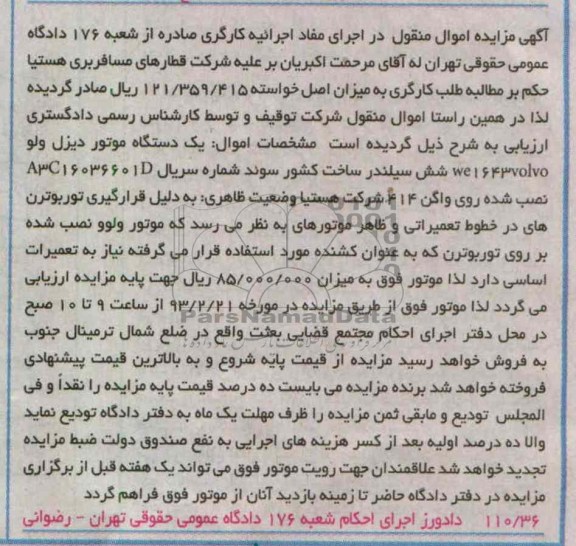 آگهی مزایده اموال منقول در اجرای مفاد اجرائیه کارگری صادره از شعبه ۱۷۶ دادگاه
عمومی حقوقی تهران له آقای مرحمت اکبریان بر علیه شرکت قطارهای مسافربری هستیا
حکم بر مطالبه طلب کارگری به میزان اصل خواسته ۱۲۱/۳۵۹/۴۱۵ ریال صادر گردیده
لذا در همین راستا اموال منقول شرکت توقیف و توسط کارشناس رسمی دادگستری
ارزیابی به شرح ذیل گردیده است مشخصات اموال: یک دستگاه موتور دیزل ولو
we۱۶۴۳volvo شش سیلندر ساخت کشور سوئد شماره سریال A۳C۱۶۰۳۶۶۰۱D
نصب شده روی واگن ۴۱۴ شرکت هستیا وضعیت ظاهری: به دلیل قرارگیری توربوترن
های در خطوط تعمیراتی و ظاهر موتورهای به نظر می رسد که موتور ولوو نصب شده
بر روی توربوترن که به عنوان کشنده مورد استفاده قرار می گرفته نیاز به تعمیرات
اساسی دارد لذا موتور فوق به میزان ۸۵/۰۰۰/۰۰۰ ریال جهت پایه مزایده ارزیابی
می گردد لذا موتور فوق از طریق مزایده در مورخه ۹۳/۲/۲۱ از ساعت ۹ تا ۱۰ صبح
ParsNamadData
در محل دفتر اجرای احکام مجتمع قضایی بعثت واقع در ضلع شمال ترمینال جنوب
به فروش خواهد رسید مزایده از قیمت پایه شروع و به بالاترین قیمت پیشنهادی
فروخته خواهد شد برنده مزایده می بایست ده درصد قیمت پایه مزایده را نقداً و فی
المجلس تودیع و مابقی ثمن مزایده را ظرف مهلت یک ماه به دفتر دادگاه تودیع نماید
والا ده درصد اولیه بعد از کسر هزینه های اجرایی به نفع صندوق دولت ضبط مزایده
تجدید خواهد شد علاقمندان جهت رویت موتور فوق می تواند یک هفته قبل از برگزاری
مزایده در دفتر دادگاه حاضر تا زمینه بازدید آنان از موتور فوق فراهم گردد
۱۱۰/۳۶ دادورز اجرای احکام شعبه ۱۷۶ دادگاه عمومی حقوقی تهران - رضوانی